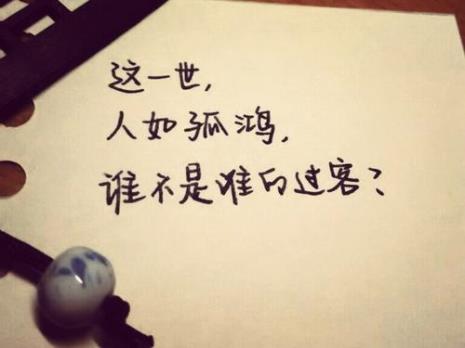 这一世，
人如孤鸿，
谁不是谁的过客？